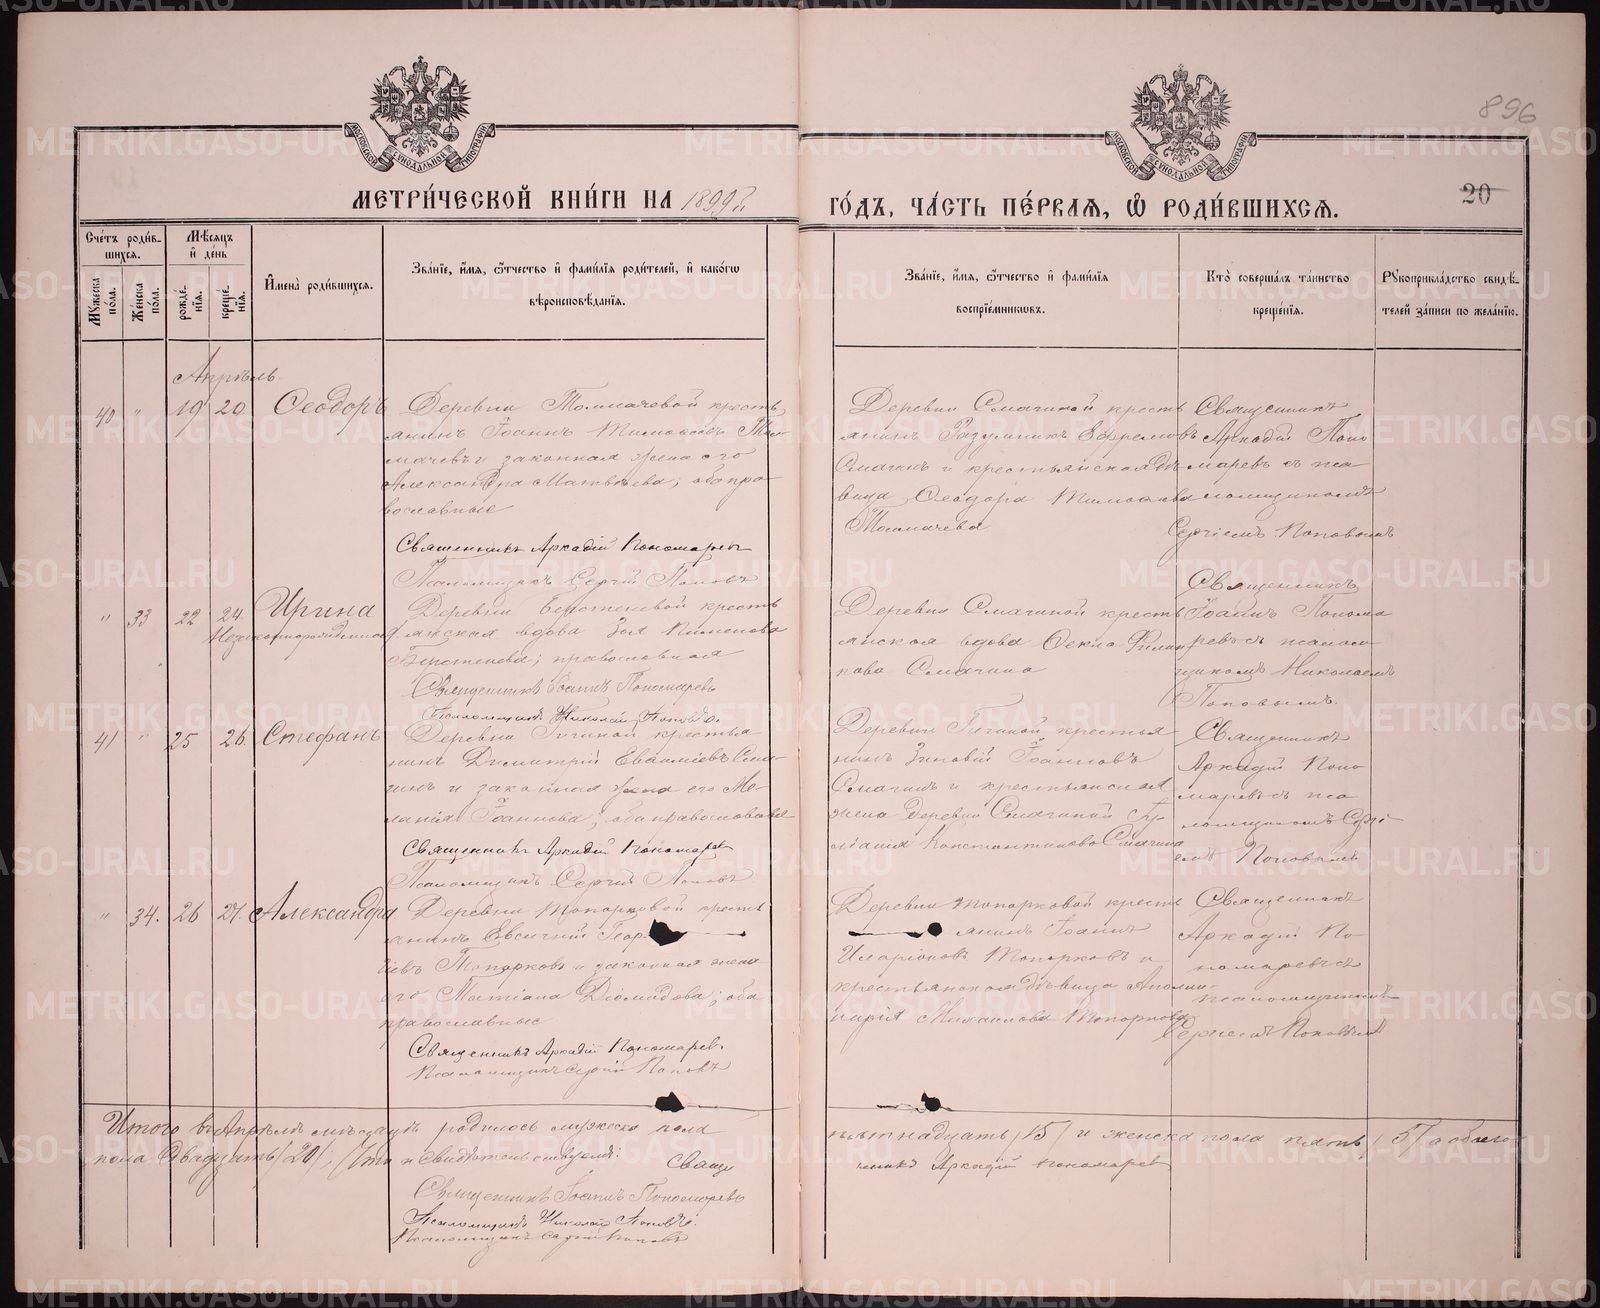 896
МОСКОВСКОЙ СѴНОДАЛЬНОЙ ТИПОГРАФІИ
МОСКОВСКОЙ СѴНОДАЛЬНОЙ ТИПОГРАФІИ
МЕТРИ́ЧЕСКОЙ КНИ́ГИ НА 1899 г.
ГО́ДЪ, ЧА́СТЬ ПЕ́РВАЯ, Ѡ҆ РОДИ́ВШИХСЯ.
20
Сче́тъ роди́в-
шихся.
Мѣ́сяцъ
и҆ де́нь
Му́жеска по́ла.
Же́нска по́ла.
рожде́-
нїя.
креще́-
нїя.
И҆мена̀ роди́вшихся.
Зва́нїе, и҆́мя, ѻ҆́тчество и҆ фами́лїя роди́телей, и҆ како́гѡ
вѣроисповѣ́данїя.
Зва́нїе, и҆́мя, ѻ҆́тчество и҆ фами́лїя
воспрїе́мникѡвъ.
Кто̀ соверша́лъ та́инство
креще́нїя.
Рукоприкла́дство свидѣ́-
телей за́писи по жела́нїю.
Апрѣль.
40 " 19 20 Ѳеодоръ
Деревни Толмачевой кресть
янинъ Іоаннъ Тимоѳеевъ Тол-
мачевъ и законная жена его
Александра Матвѣева; оба пра-
вославные
Священникъ Аркадій Пономаревъ
Псаломщикъ Сергій Поповъ
Деревни Смагиной кресть
янинъ Разумникъ Ефремовъ
Смагинъ и крестьянская дѣ
вица Ѳеодора Тимоѳеева
Толмачева
Священникъ
Аркадій Поно
маревъ съ пса
ломщикомъ
Сергіемъ Поповымъ
" 33 22 24 Ирина
Незаконнорожденная
Деревни кресть
янская вдова Зоя Пименова
православная
Священникъ Іоаннъ Пономаревъ
Псаломщикъ Николай Поповъ
Деревни Смагиной кресть
янская вдова Ѳекла Филип
пова Смагина
Священникъ
Іоаннъ Понома
ревъ съ псалом
щикомъ Николаемъ
Поповымъ.
41 " 25 26 Стефанъ
Деревни крестья
нинъ Димитрій Евѳиміевъ Сма-
гинъ и законная жена его Ме-
ланія Іоаннова; оба православные
Священникъ Аркадій Пономаревъ
Псаломщикъ Сергій Поповъ
Деревни крестья
нинъ Зиновій Іоанновъ
Смагинъ и крестьянская
жена деревни Смагиной
Константинова Смагина
Священникъ
Аркадій Поно
маревъ съ пса
ломщикомъ Сергі
емъ Поповымъ
" 34. 26 27. Александра
Деревни Топорковой кресть
янинъ Евсигній Геор
гіевъ Топорковъ и законная жена
его Татіана Діомидова; оба
православные
Священникъ Аркадій Пономаревъ
Псаломщикъ Сергій Поповъ
Деревни Топорковой кресть
янинъ Іоаннъ
Иларіоновъ Топорковъ и
крестьянская дѣвица Аполли-
нарія Михаилова Топоркова
Священникъ
Аркадій По
номаревъ съ
псаломщикомъ
Сергіемъ Поповымъ
Итого въ Апрѣлѣ мѣсяцѣ родилось мужеска пола
пятнадцать /15/ и женска пола пять /5/ а обоего
пола двадцать /20/; что и свидѣтельствуемъ: Свящ
енникъ Аркадій Пономаревъ
Священникъ Іоаннъ Пономаревъ
Псаломщикъ Николай Поповъ.
Псаломщикъ Сергій Поповъ
METRIKI.GASO-URAL.RU